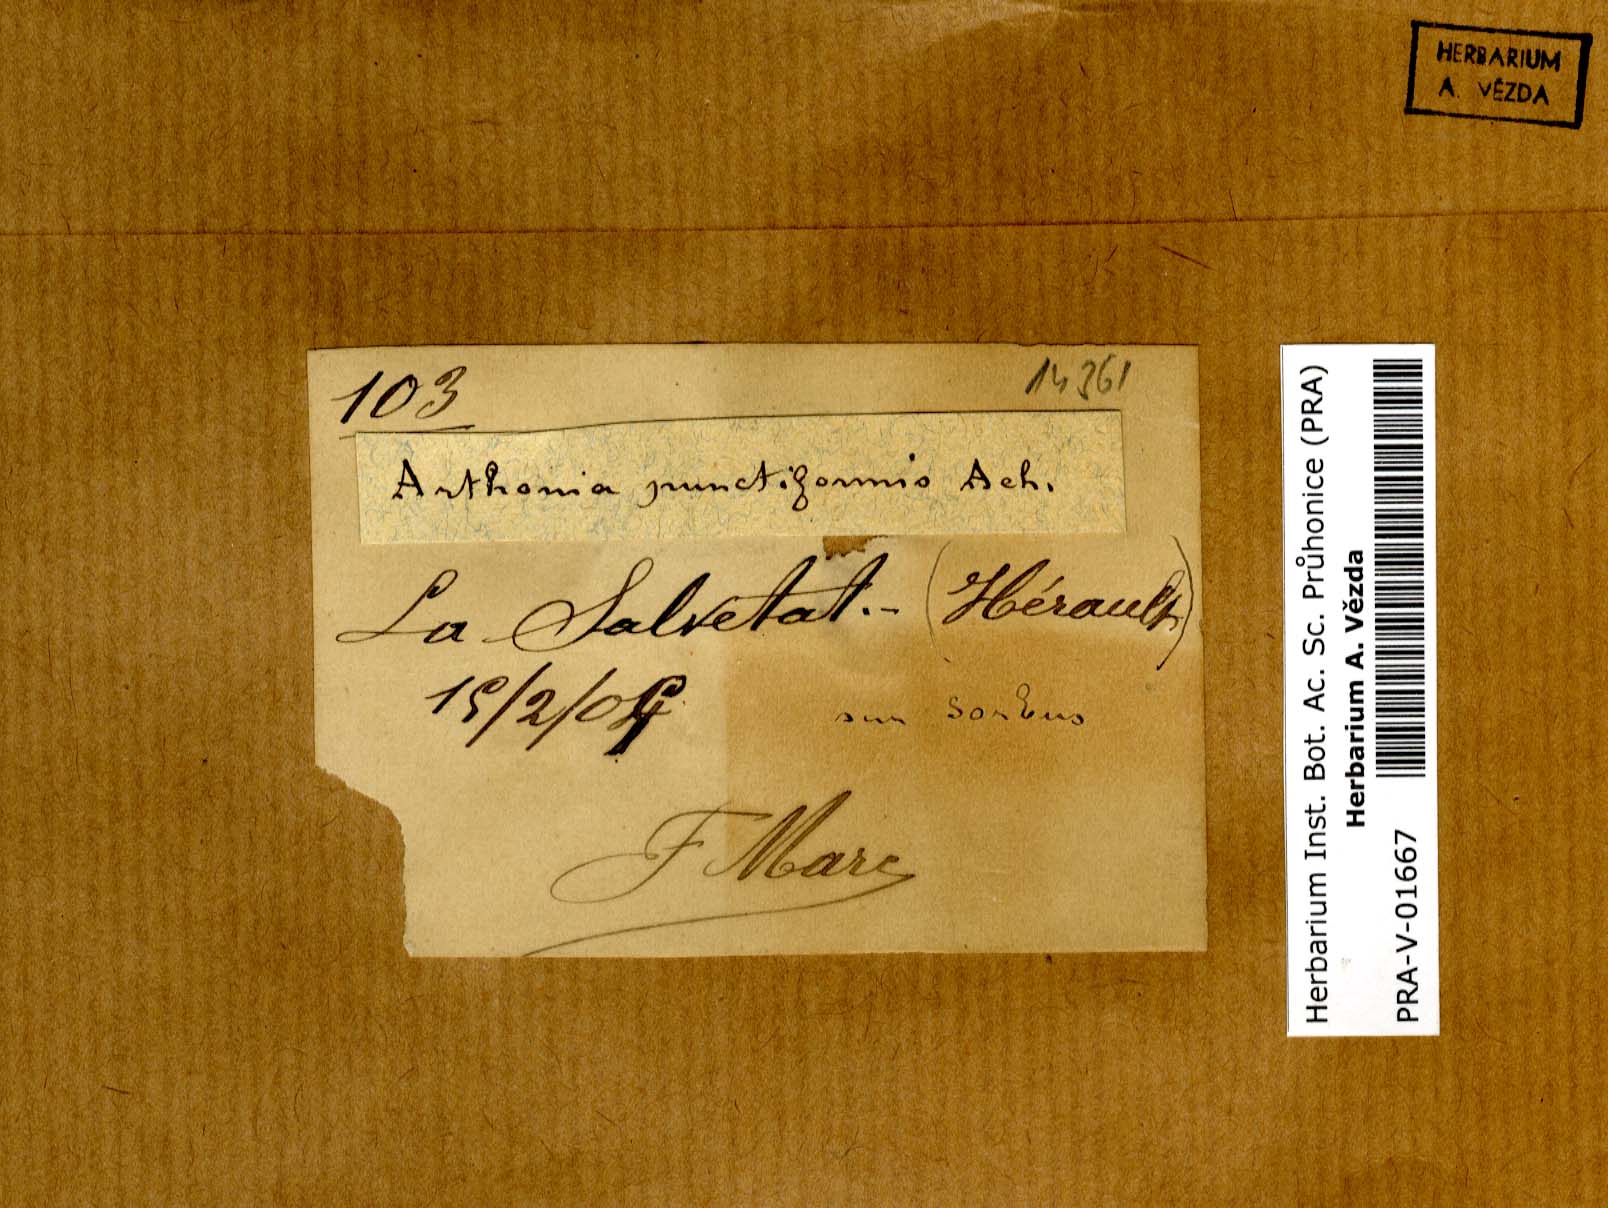 HERBARIUM
A. VĚZDA
103
14361
Arthonia punctiformis Ach.
La Salvetat.- (Hérault)
sur Sorbus
F Marc
Herbarium Inst. Bot. Ac. Sc. Průhonice (PRA)
Herbarium A. Vězda
PRA-V-01667